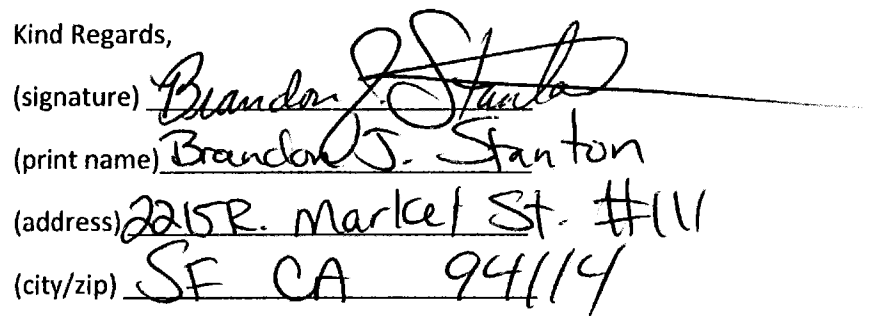 Kind Regards,
(signature) Brandon J. Stanton
(print name) Brandon J. Stanton
(address) 2215R. Market St. #111
(city/zip) SF CA 94114